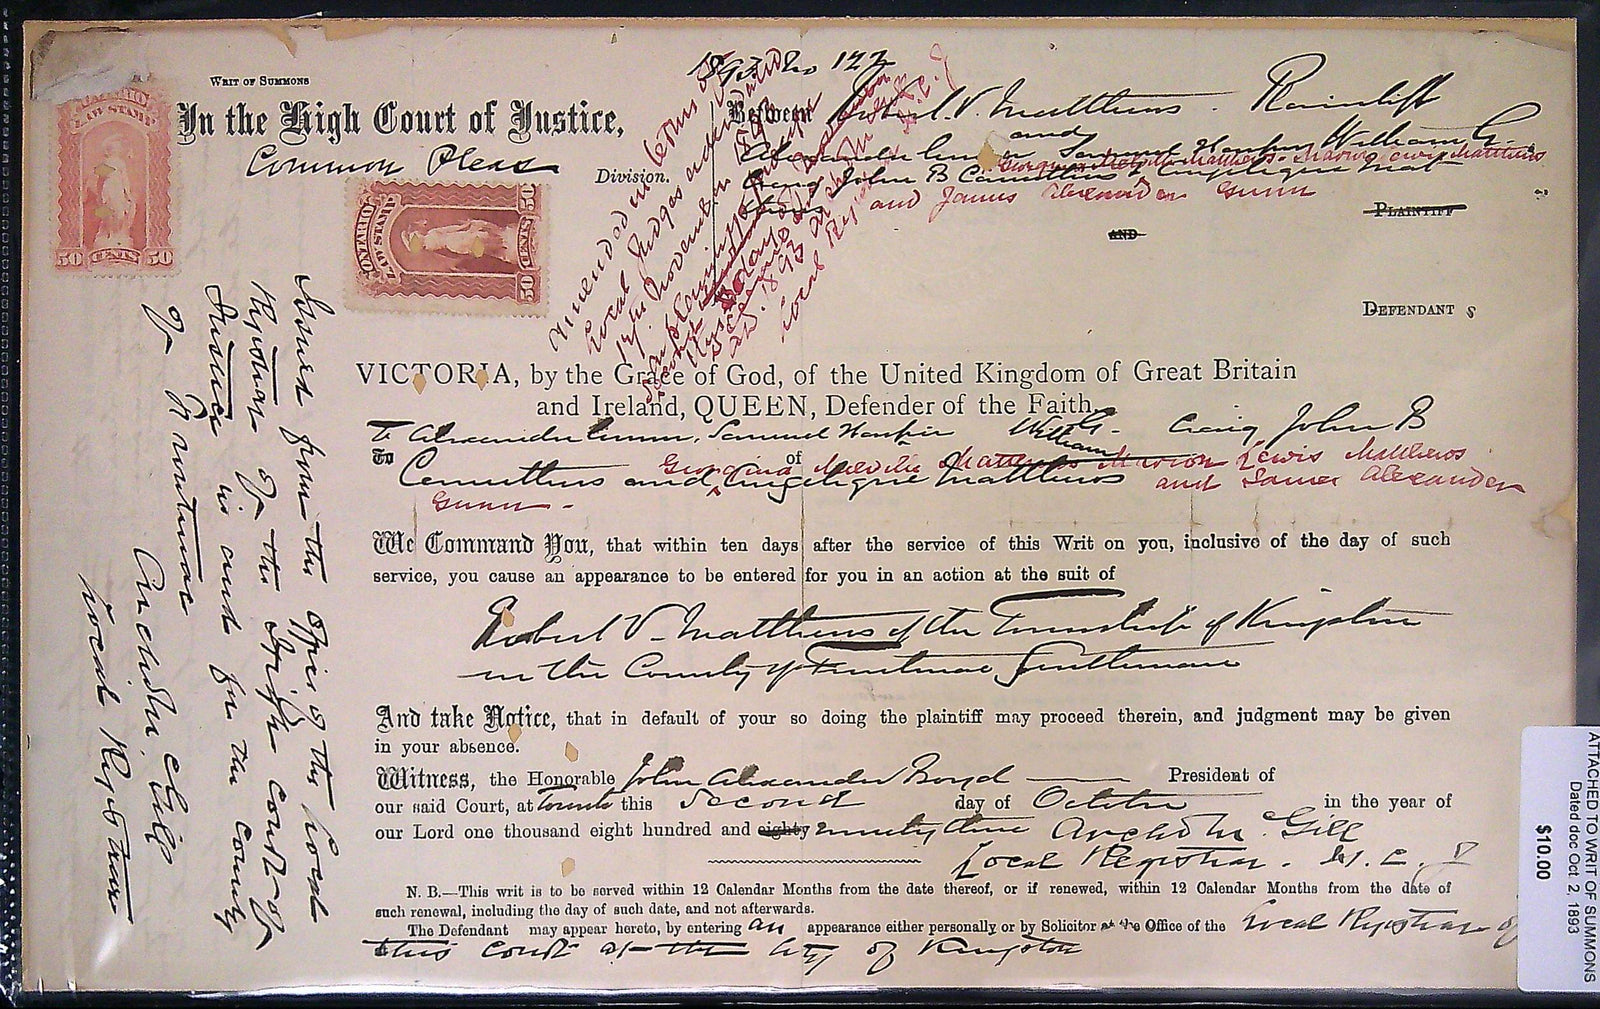 WRIT OF SUMMONS
In the High Court of Justice,
Common Pleas
Division.
ONTARIO
LAW STAMP
50 CENTS 50
ONTARIO
LAW STAMP
50 CENTS 50
1893 No 122
Between Robert V. Matthews. Plaintiff
and
Alexander Gunn Samuel Harper William G.
Georgina Melville Matthews Marion Lewis Matthews
Craig John B Carruthers & Angelique Mat
thews and James Alexander Gunn
PLAINTIFF
AND
DEFENDANT s
Amended
Local Judges order
November
December
A.D. 1893
Local Registrar
VICTORIA, by the Grace of God, of the United Kingdom of Great Britain
and Ireland, QUEEN, Defender of the Faith.
To Alexander Gunn, Samuel Harper William G. Craig John B
To of
Georgina Melville Matthews Marion Lewis Matthews
Carruthers and Angelique Matthews and James Alexander
Gunn.
We Command You, that within ten days after the service of this Writ on you, inclusive of the day of such
service, you cause an appearance to be entered for you in an action at the suit of
Robert V. Matthews of the Township of Kingston
in the County of Frontenac Gentleman
And take Notice, that in default of your so doing the plaintiff may proceed therein, and judgment may be given
in your absence.
Witness, the Honorable John Alexander Boyd President of
our said Court, at Toronto this Second day of October in the year of
our Lord one thousand eight hundred and eighty ninety three Archd McGill
Local Registrar. H. C. J
N. B.—This writ is to be served within 12 Calendar Months from the date thereof, or if renewed, within 12 Calendar Months from the date of
such renewal, including the day of such date, and not afterwards.
The Defendant may appear hereto, by entering an appearance either personally or by Solicitor at the Office of the Local Registrar of
this Court at the City of Kingston
Issued from the office of the Local
Registrar of the High Court of
Justice in and for the County
of Frontenac
Archibald McGill
Local Registrar
ATTACHED TO WRIT OF SUMMONS
Dated doc Oct 2, 1893
$10.00